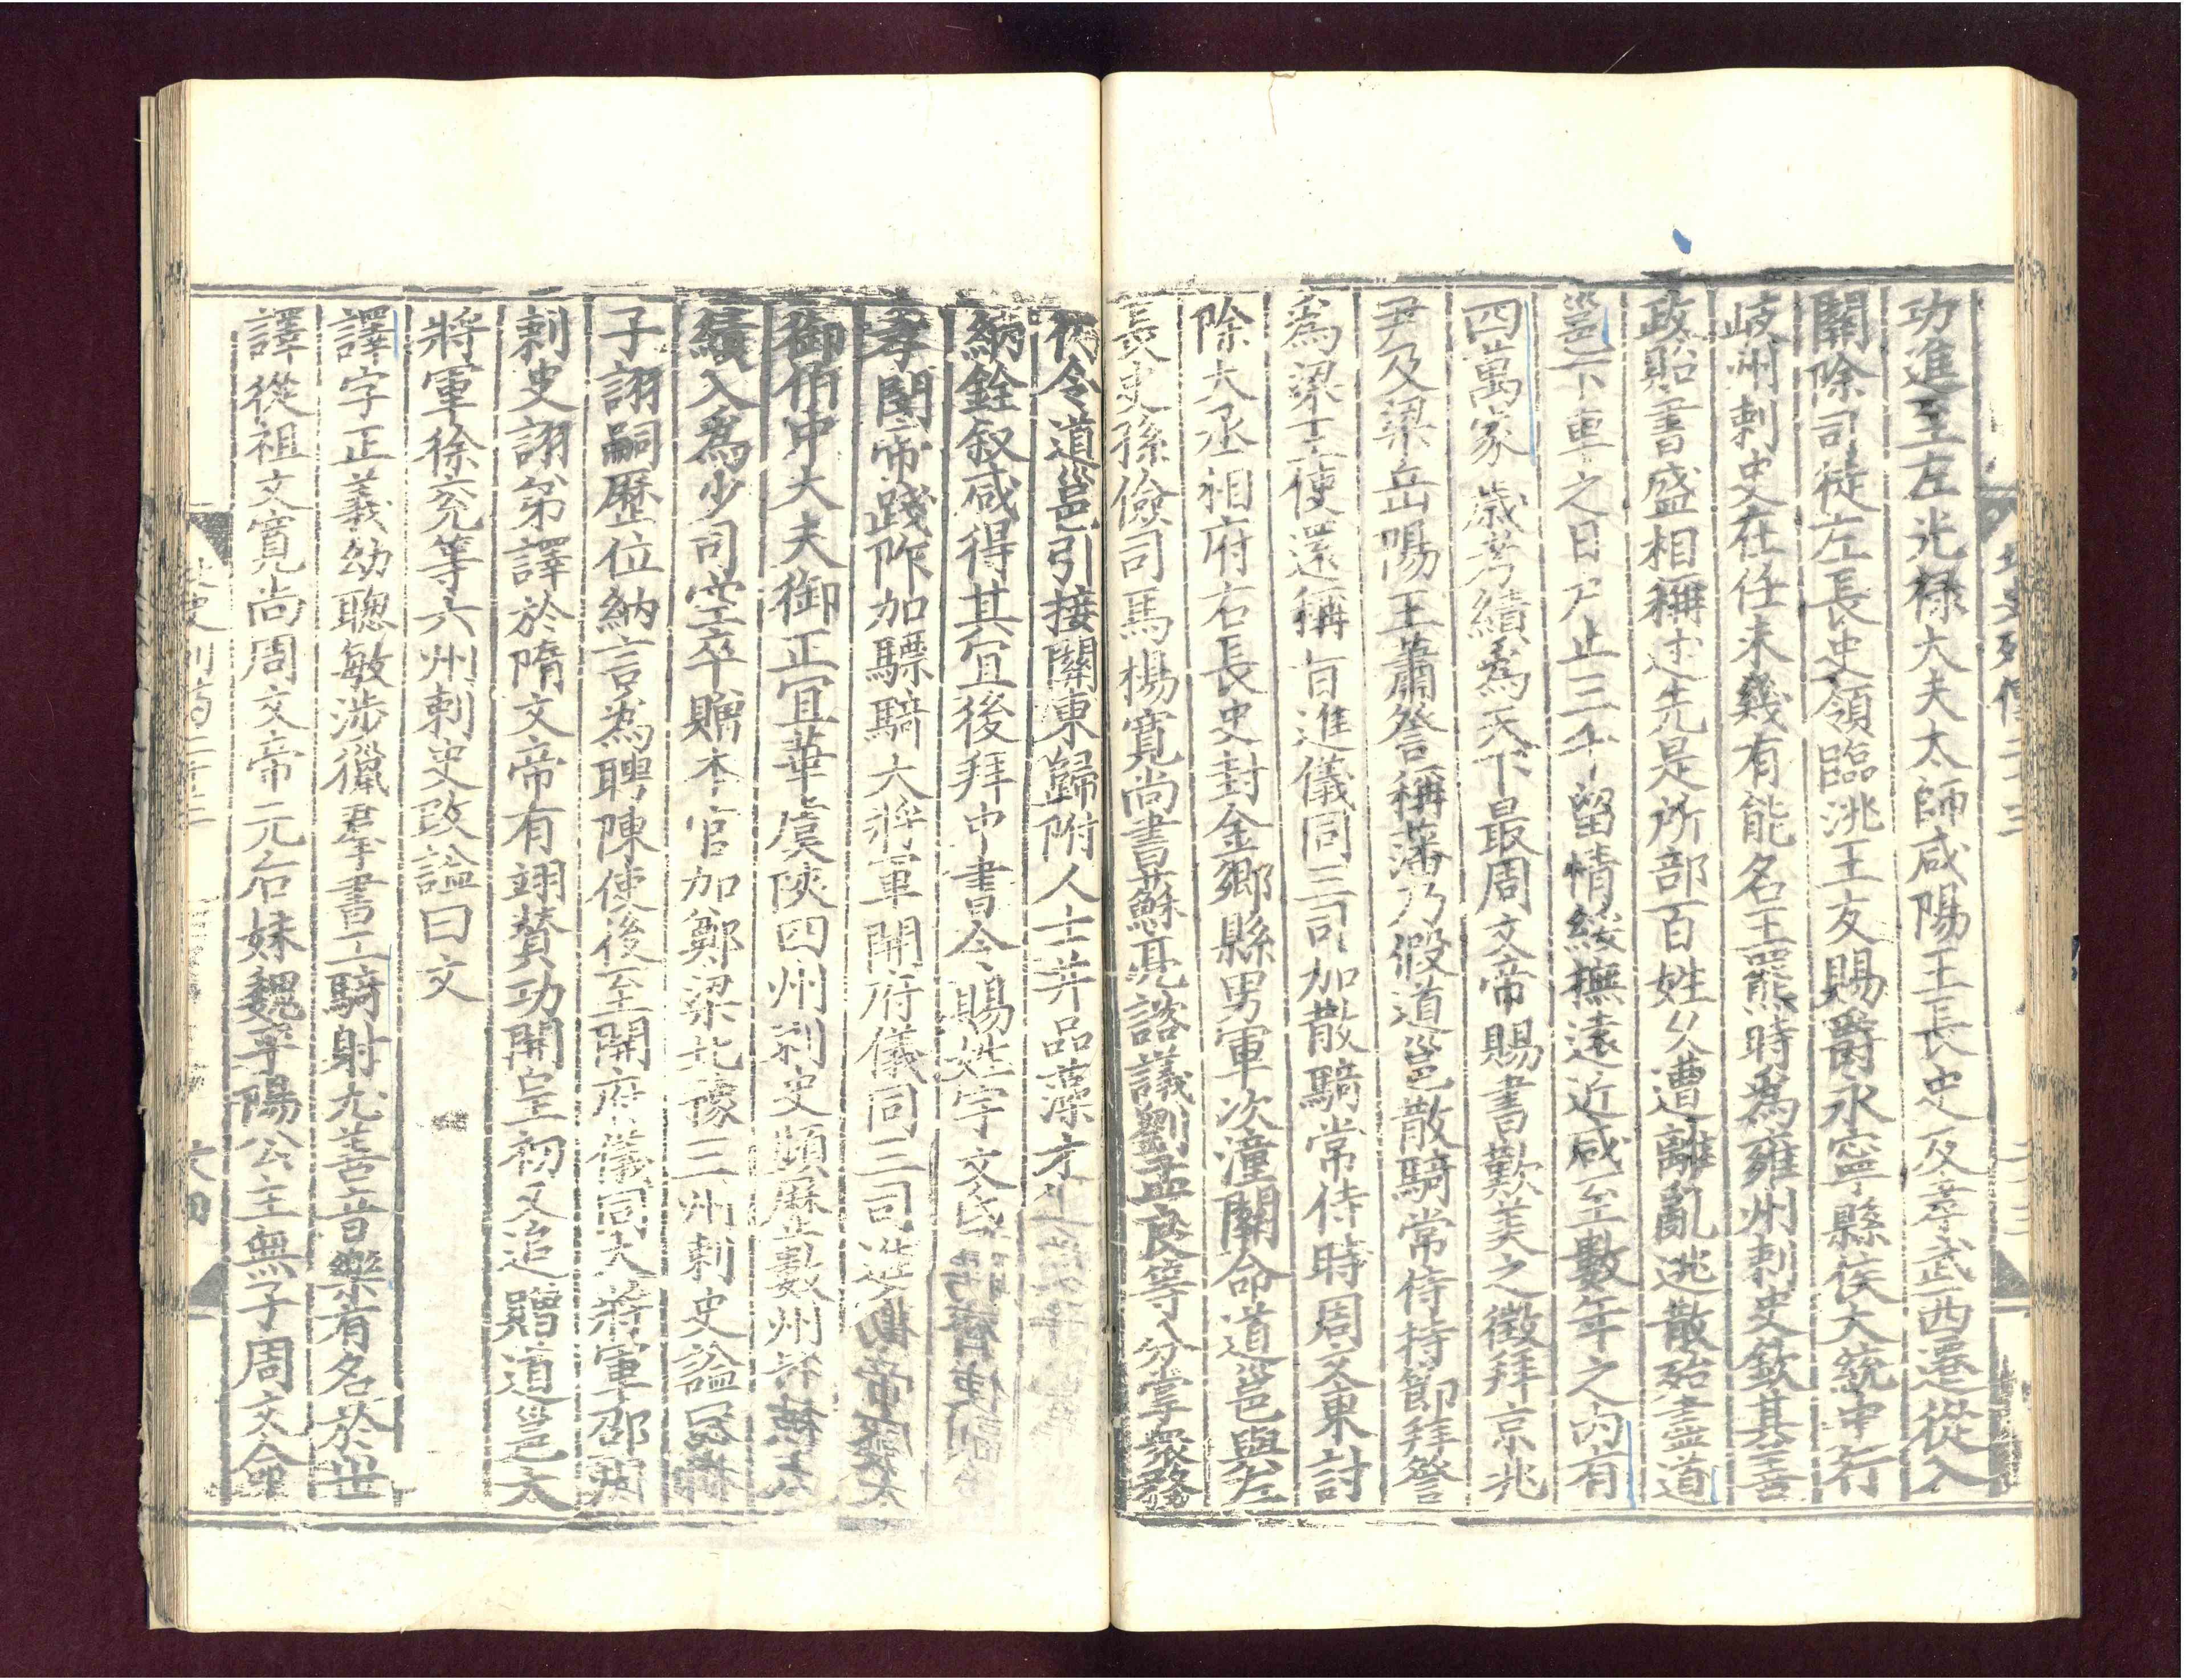 北史列傳二十三
功進至左光祿大夫太師咸陽王長史及孝武西遷從入
關除司徒左長史領臨洮王友賜爵永寧縣侯大統中行
岐州刺史在任未幾有能名王羆時為雍州刺史欽其善
政貽書盛相稱述先是所部百姓久遭離亂逃散殆盡道
邕下車之日戶止三千留情綏撫遠近咸至數年之內有
四萬家歲考績為天下最周文帝賜書歎美之徵拜京兆
尹及梁岳陽王蕭詧稱藩乃假道邕散騎常侍持節拜詧
為梁王使還稱旨進儀同三司加散騎常侍時周文東討
除大丞相府右長史封金鄉縣男軍次潼關命道邕與左
長史孫儉司馬楊寬尚書蘇亮諮議劉孟良等分掌眾務
仍令道邕引接關東歸附人士并品藻才
納銓叙咸得其宜後拜中書令賜姓宇文氏
孝閔帝踐阼加驃騎大將軍開府儀同三司進
御伯中大夫御正宜華虞陝四州刺史頻歷數州
績入為少司空卒贈本官加鄭梁北豫三州刺史謚曰
子詡嗣歷位納言為聘陳使後至開府儀同大將軍邵
刺史詡弟譯於隋文帝有翊贊功開皇初又追贈道邕大
將軍徐兗等六州刺史改謚曰文
譯字正義幼聰敏涉獵羣書工騎射尤善音樂有名於世
譯從祖文寬尚周文帝元后妹魏平陽公主無子周文命
六四